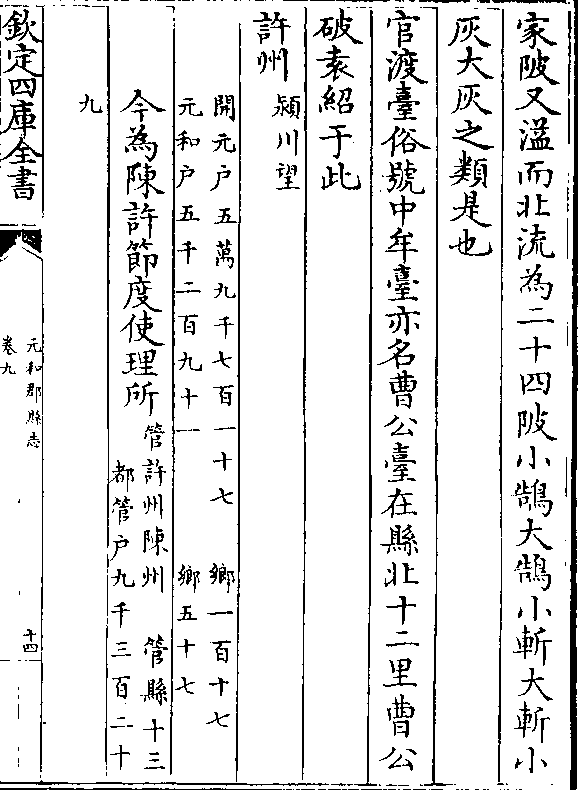 家陂又溢而北流為二十四陂小鵠大鵠小斬大斬小
灰大灰之類是也
官渡臺俗號中牟臺亦名曹公臺在縣北十二里曹公
破袁紹于此
許州 潁川望
開元户五萬九千七百一十七 鄉一百十七
元和户五千二百九十一 鄉五十七
今為陳許節度使理所 管許州陳州 管縣十三
都管户九千三百二十
九
欽定四庫全書
元和郡縣志
卷九
十四